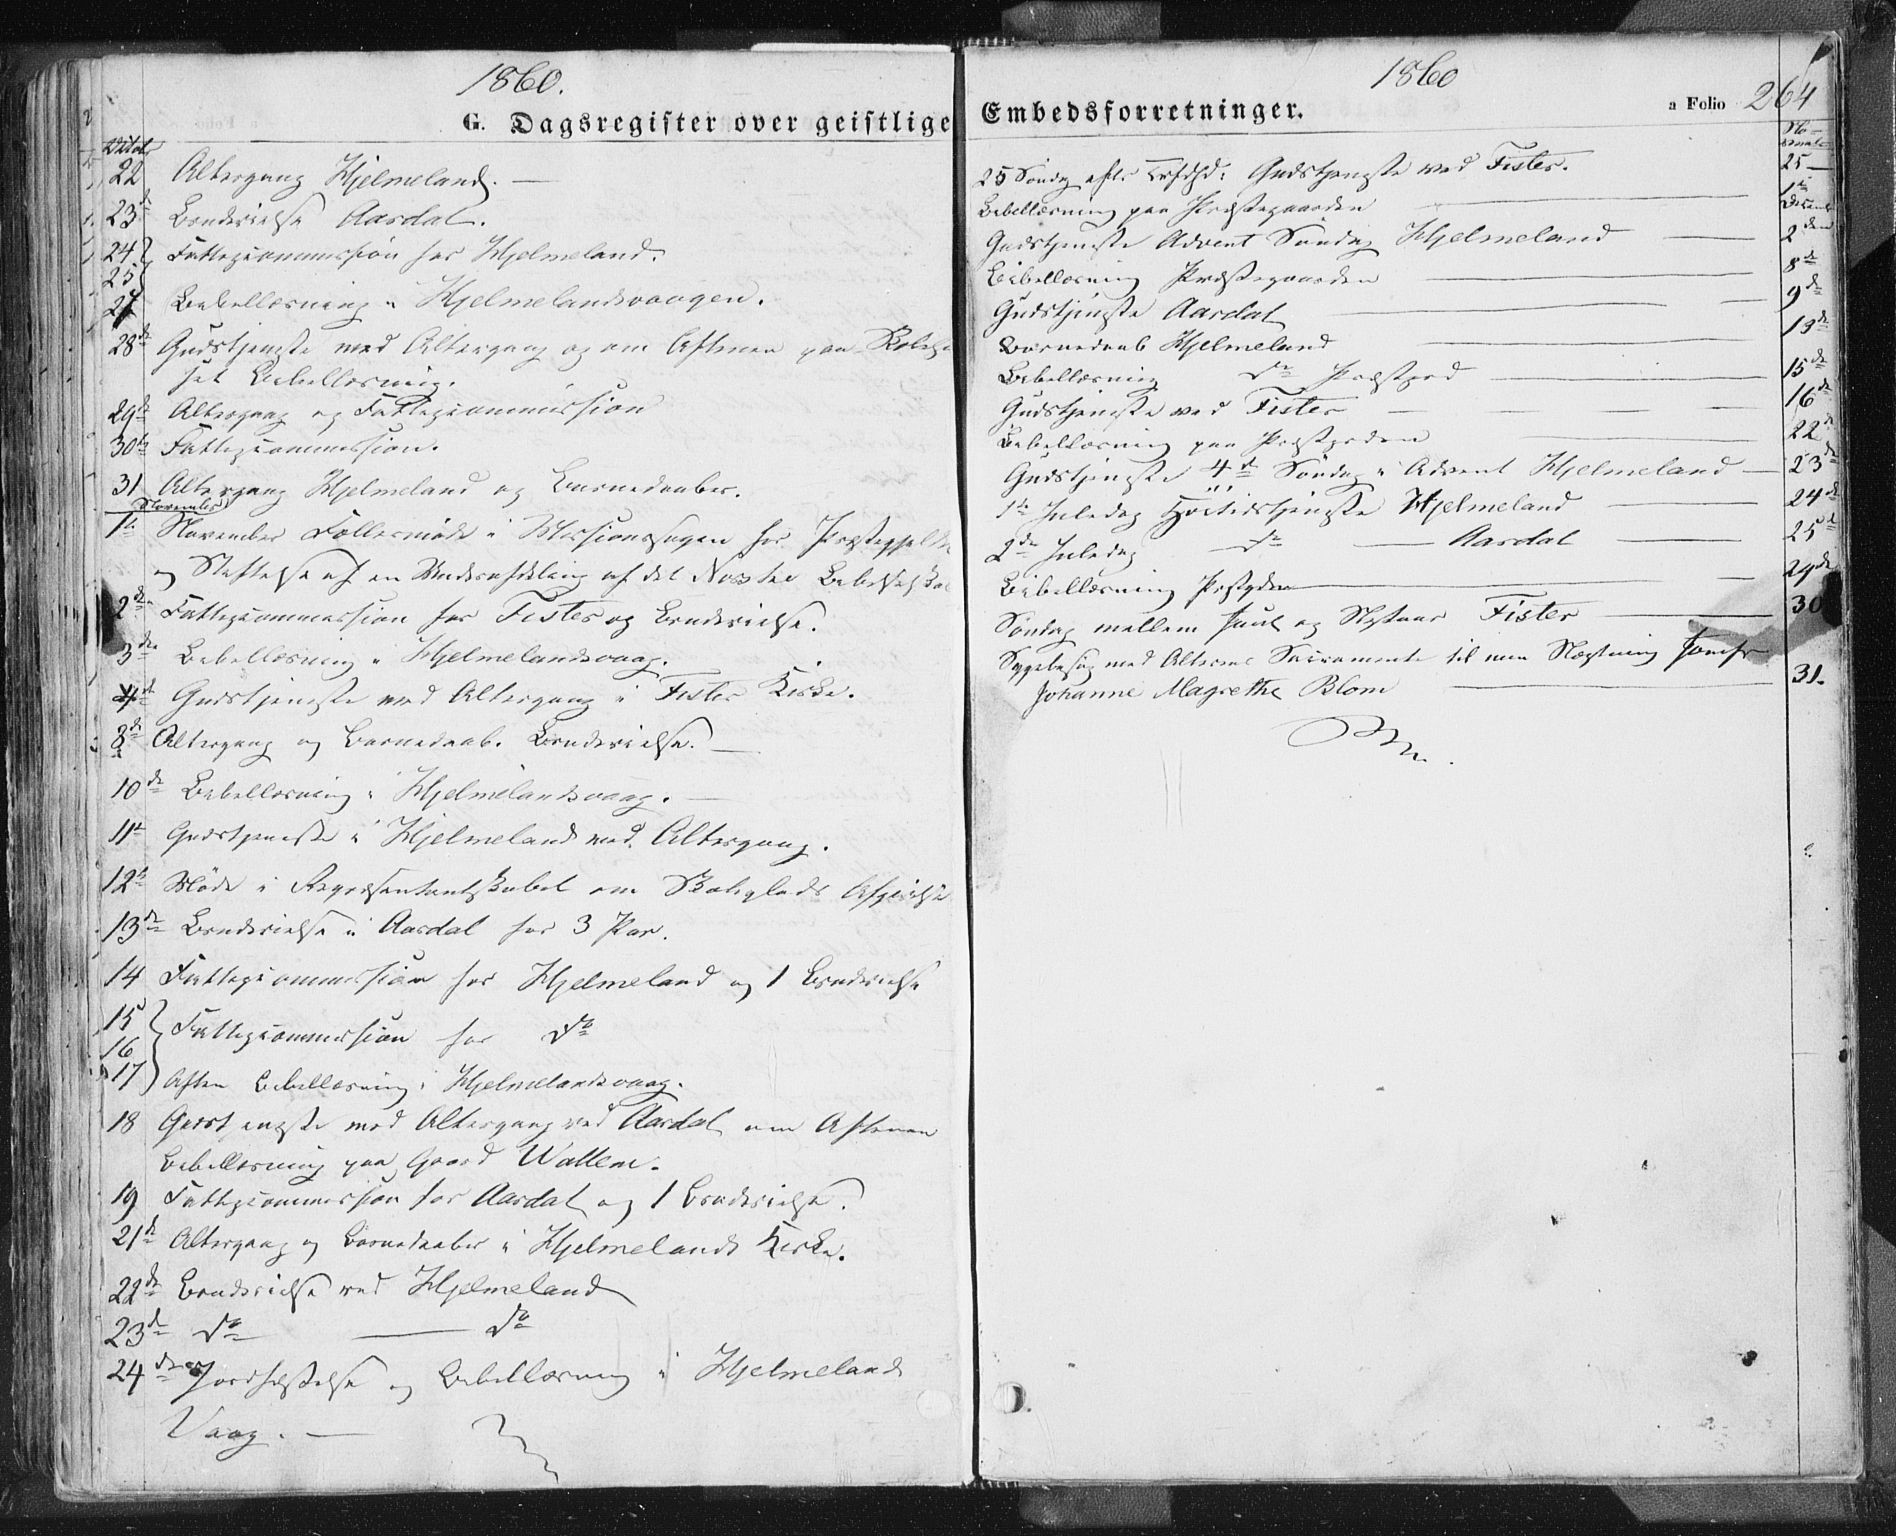 1860.
G. Dagsregister over geistlige
Octobr
22 Altergang Hjelmeland. —
23de Brudevielse Aardal.
24 Fattigcommission for Hjelmeland.
25
27 Bibellæsning i Hjelmelandsvaagen.
28de Gudstjeneste med Altergang og om Aftenen paa
set Bibellæsning.
29de Altergang og Fattigcommission
30te Fattigcommission.
31 Altergang Hjelmeland og Barnedaaber.
November
1te November Fællesmøde i Missionssagen for Præstegjeldet
og Stiftelse af en Underafdeling af det Norske Bibelselskab
2den Fattigcommission for Fister og Brudevielse.
3die Bibellæsning i Hjelmelandsvaag.
4de Gudstjeneste med Altergang i Fister Kirke.
8de Altergang og Barnedaab. Brudevielse. —
10de Bibellæsning i Hjelmelandsvaag. —
11te Gudstjeneste i Hjelmeland med Altergang.
12te Møde i Repræsentantskabet om
13de Brudevielse i Aardal for 3 Par.
14 Fattigcommission for Hjelmeland og 1 Brudevielse
15 Fattigcommission for do
16
17 Aften Bibellæsning i Hjelmelandsvaag.
18 Gudstjeneste med Altergang ved Aardal om Aftenen
Bibellæsning paa Gaard Wallem.
19 Fattigcommission for Aardal og 1 Brudevielse.
21de Altergang og Barnedaaber i Hjelmelands Kirke.
22de Brudevielse ved Hjelmeland
23de do — do
24de Jordfæstelse og Bibellæsning i Hjelmelands
Vaag. —
1860
Embedsforretninger.
a Folio 264
November
25 Søndag efter Trefdhd: Gudstjeneste ved Fister. 25 —
Bibellæsning paa Præstegaarden — 1te December
Gudstjeneste Advent Søndag Hjelmeland — 2den
Bibellæsning Præstegaarden — 8de
Gudstjeneste Aardal — 9de
Barnedaab Hjelmeland — 13de
Bibellæsning do Præstgrd — 15de
Gudstjeneste ved Fister — 16de
Bibellæsning paa Præstgrden — 22de
Gudstjeneste 4de Søndag i Advent Hjelmeland — 23de
1te Juledag Høitidstjeneste Hjelmeland — 24de
2den Juledag do — Aardal — 25de
Bibellæsning Prstgrden — 29de
Søndag mellem Juul og Nytaar Fister — 30
Sygebesøg med Alterens Sacramente til min Slægtning Jomfr
Johanne Magrethe Blom — 31.